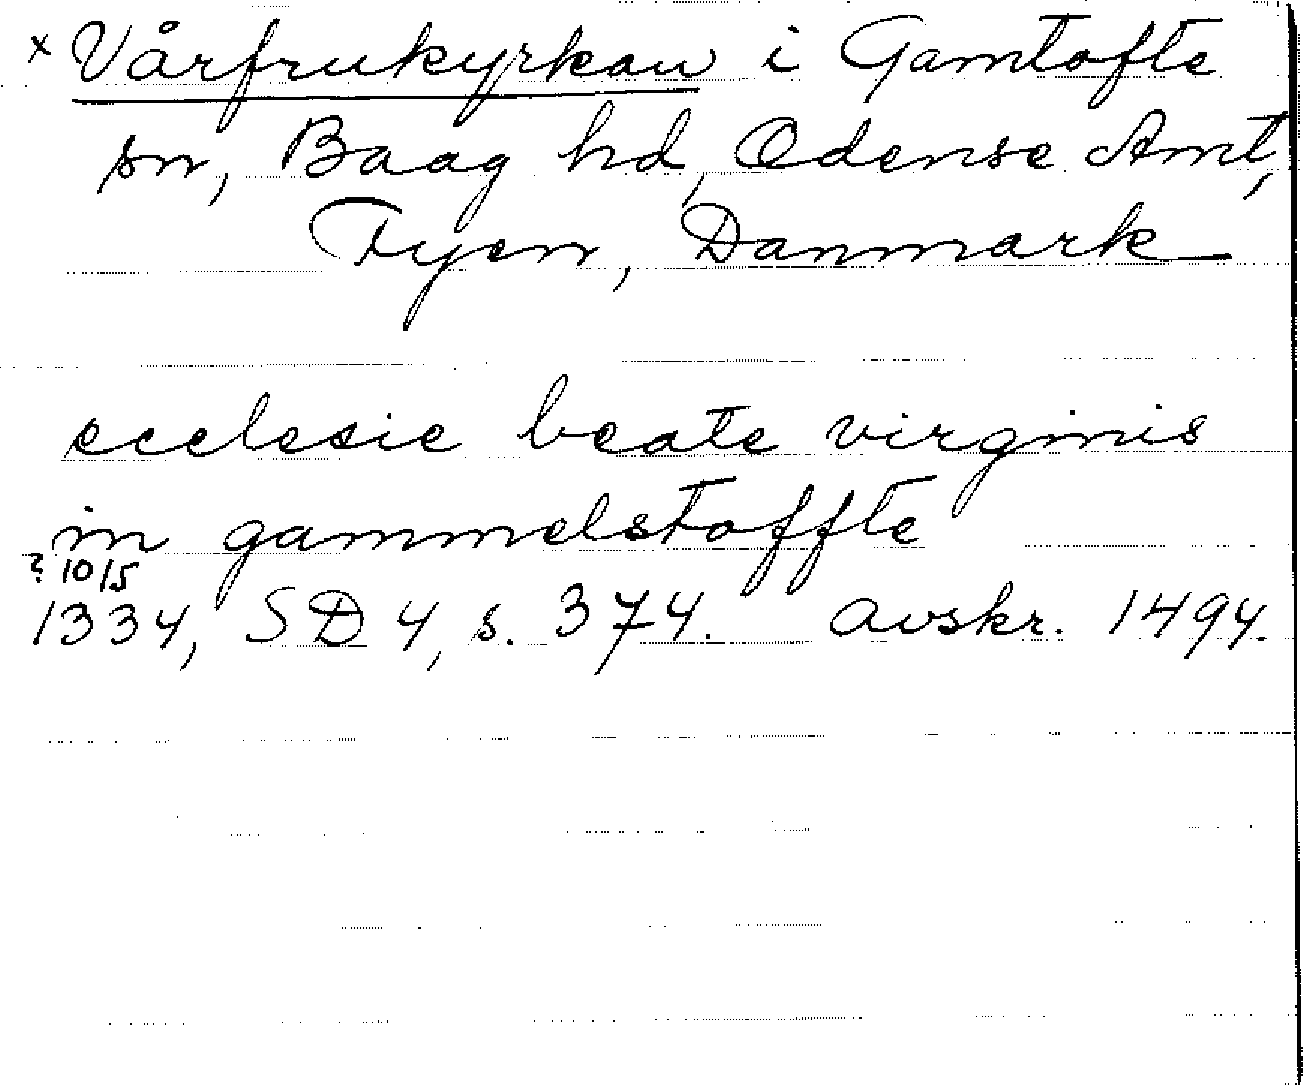 x Vårfrukyrkan i Gamtofte
sn, Baag hd, Odense Amt,
Fyen, Danmark
ecclesie beate virginis
in gammelstoffte
? 10/5
1334, SD 4, s. 374. avskr. 1494.